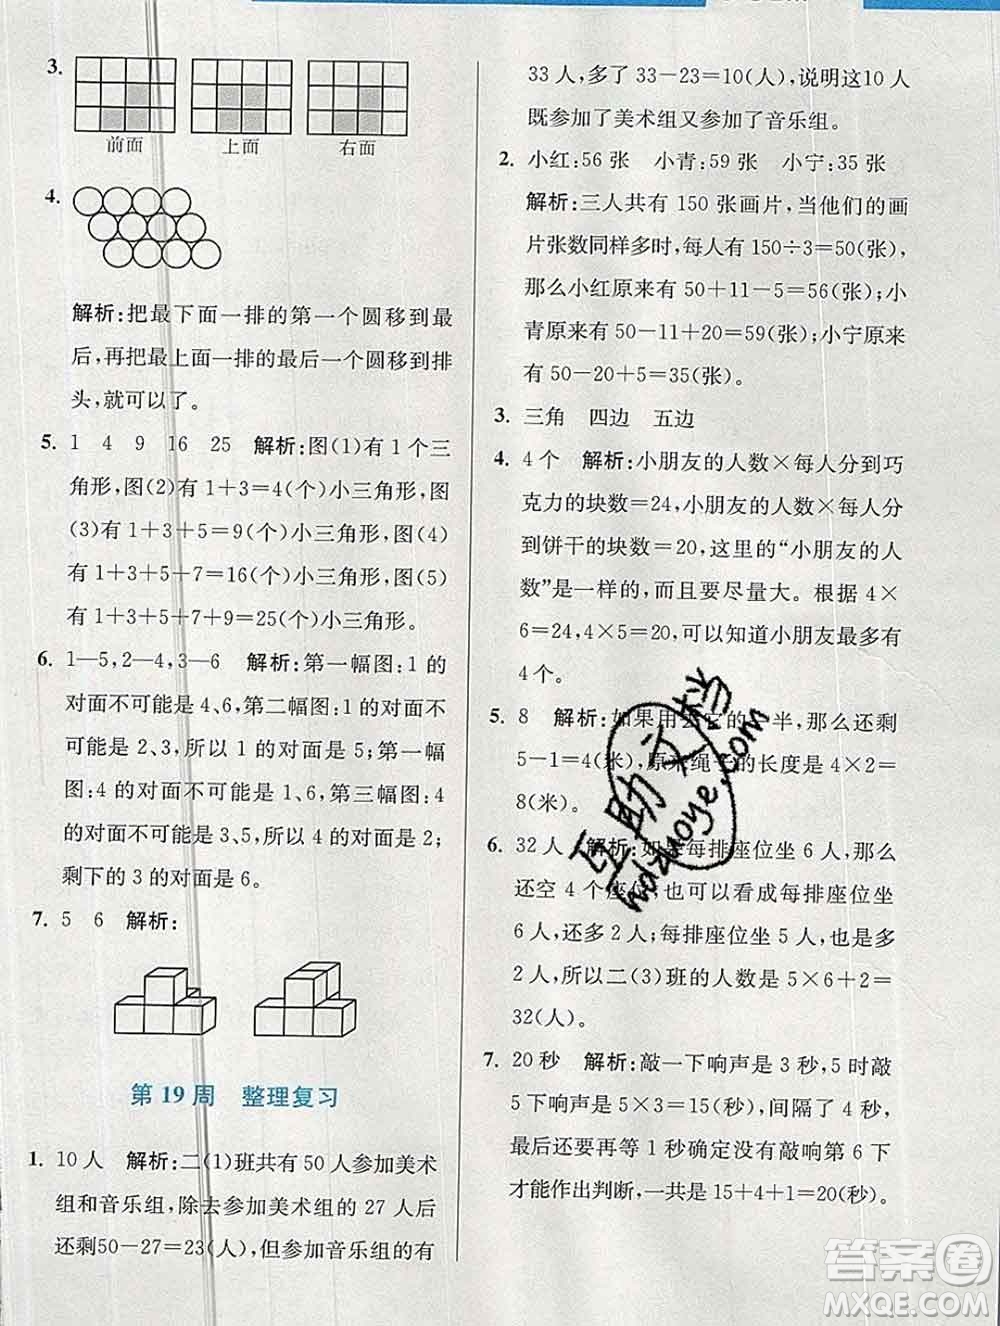 3.
前面 上面 右面
4.
解析:把最下面一排的第一个圆移到最
后,再把最上面一排的最后一个圆移到排
头,就可以了。
5. 1 4 9 16 25 解析:图(1)有1个三
角形,图(2)有1+3=4(个)小三角形,图
(3)有1+3+5=9(个)小三角形,图(4)
有1+3+5+7=16(个)小三角形,图(5)
有1+3+5+7+9=25(个)小三角形。
6. 1—5,2—4,3—6 解析:第一幅图:1的
对面不可能是4、6,第二幅图:1的对面不
可能是2、3,所以1的对面是5;第一幅
图:4的对面不可能是1、6,第三幅图:4
的对面不可能是3、5,所以4的对面是2;
剩下的3的对面是6。
7. 5 6 解析:
第19周 整理复习
1. 10人 解析:二(1)班共有50人参加美术
组和音乐组,除去参加美术组的27人后
还剩50-27=23(人),但参加音乐组的有
33人,多了33-23=10(人),说明这10人
既参加了美术组又参加了音乐组。
2. 小红:56张 小青:59张 小宁:35张
解析:三人共有150张画片,当他们的画
片张数同样多时,每人有150÷3=50(张),
那么小红原来有50+11-5=56(张),小
青原来有50-11+20=59(张),小宁原来
有50-20+5=35(张)。
3. 三角 四边 五边
4. 4个 解析:小朋友的人数×每人分到巧
克力的块数=24,小朋友的人数×每人分
到饼干的块数=20,这里的“小朋友的人
数”是一样的,而且要尽量大。因为4×
6=24,4×5=20,可以知道小朋友最多有
4个。
5. 8 解析:如果用去它的一半,那么还剩
5-1=4(米),原来绳子的长度是4×2=
8(米)。
6. 32人 解析:如果每排座位坐6人,那么
还空4个座位,也可以看成每排座位坐
6人,还多2人;每排座位坐5人,也多
2人,所以二(3)班的人数是5×6+2=
32(人)。
7. 20秒 解析:敲一下响声是3秒,5时敲
5下响声是5×3=15(秒),间隔了4秒,
最后还要再等1秒确定没有敲响第6下
才能作出判断,一共是15+4+1=20(秒)。
互助文档
hdzuoye.com
答案圈
MXQE.COM